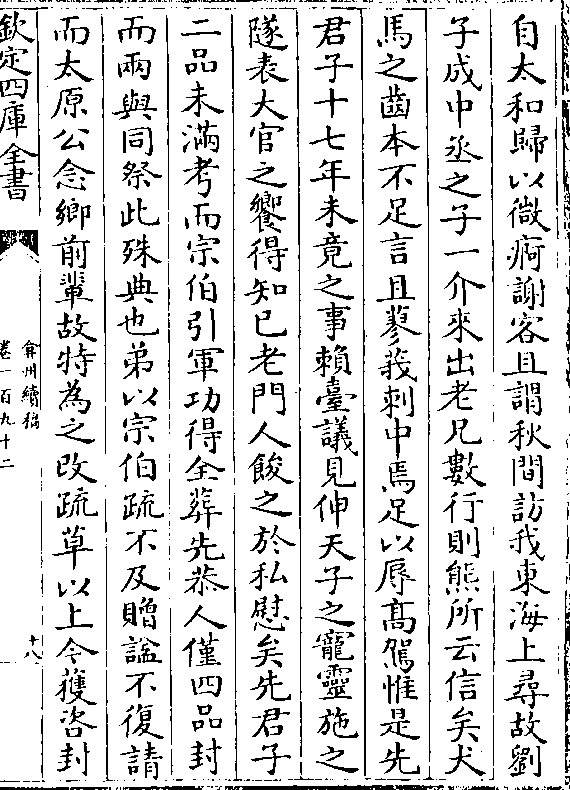 自太和歸以微痾謝客且謂秋間訪我東海上尋故劉
子成中丞之子一介來出老兄數行則熊所云信矣犬
馬之齒本不足言且蓼莪刺中焉足以辱髙駕惟是先
君子十七年未竟之事賴臺議見伸天子之寵靈施之
隧表大官之饗得知已老門人餕之於私慰矣先君子
二品未滿考而宗伯引軍功得全葬先恭人僅四品封
而兩與同祭此殊典也弟以宗伯疏不及贈諡不復請
而太原公念鄉前輩故特為之改疏草以上令獲咨封
欽定四庫全書
弇州續稿
卷一百九十二
十八